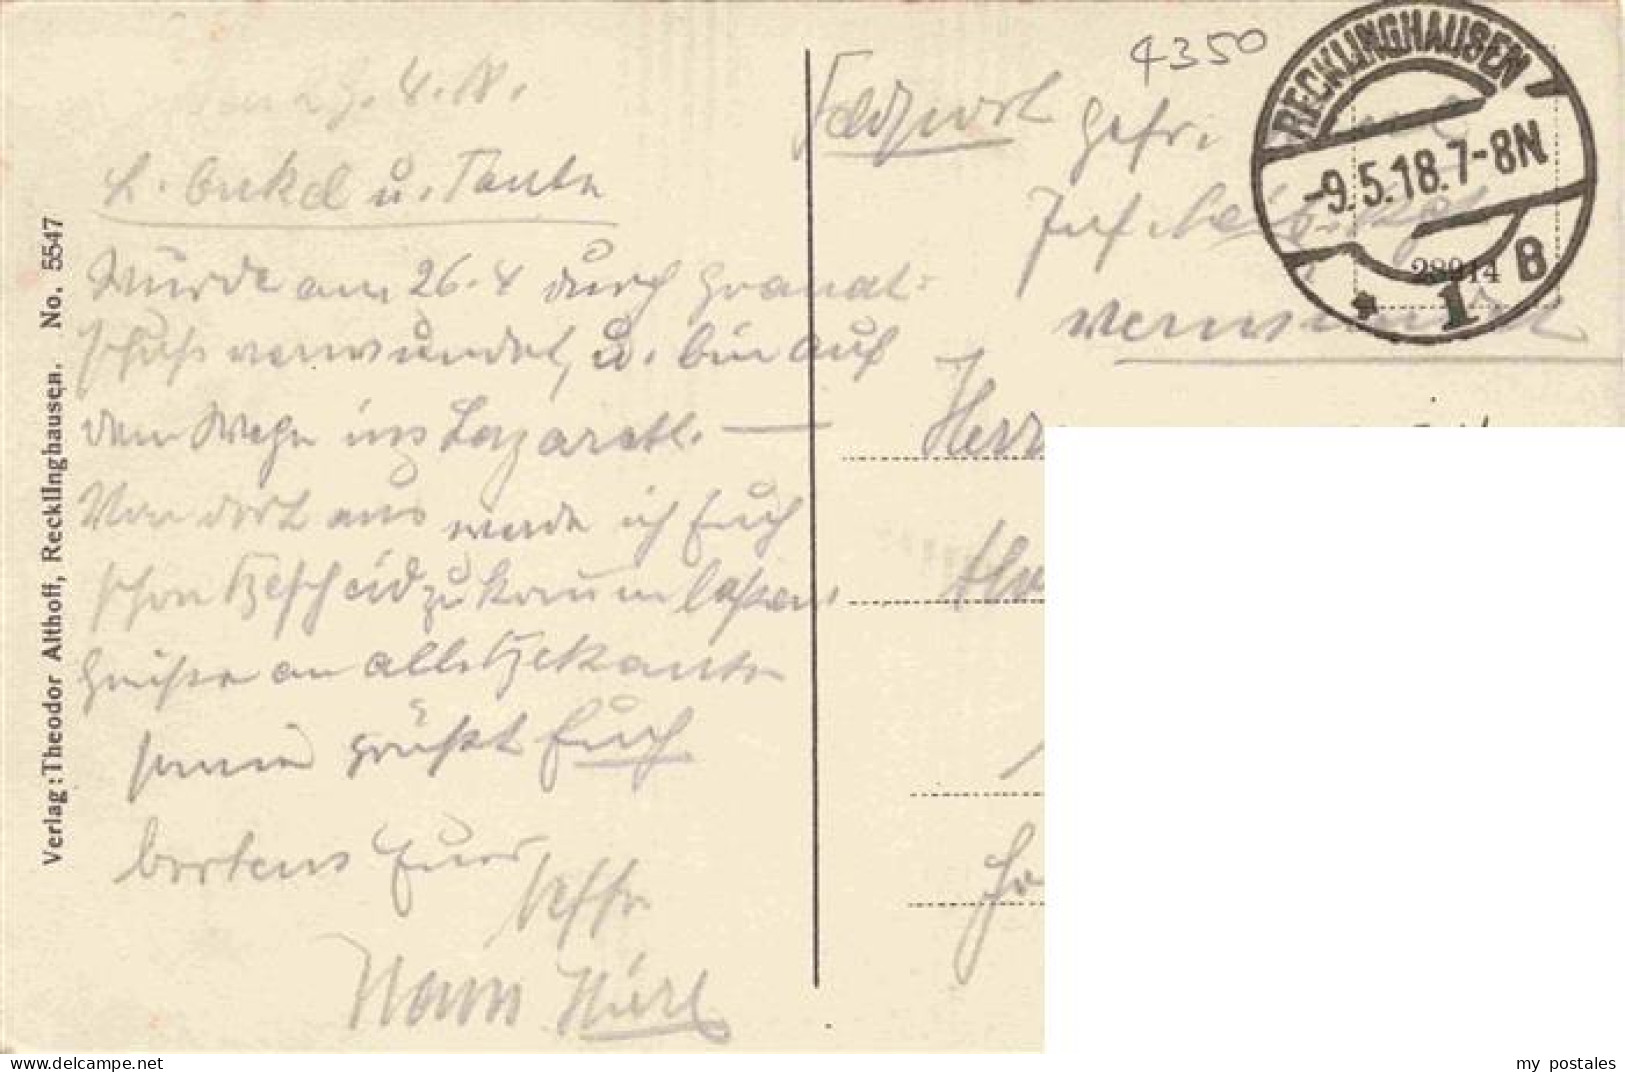 29. 4. 18.
L. Onkel u. Tante
Wurde am 26. 4 durch Granat=
schuß verwundet, u. bin auf
dem Wege ins Lazarett. —
Von dort aus werde ich Euch
schon Bescheid zukommen lassen.
Grüße an alle Bekannte
grüßt Euch
bestens Euer
Neffe
Verlag: Theodor Althoff, Recklinghausen. No. 5547
4350
Feldpost
Gefr.
Inf.
verwundet
Herr
RECKLINGHAUSEN
-9.5.18.7-8N.
* 1 B
28914
my postales